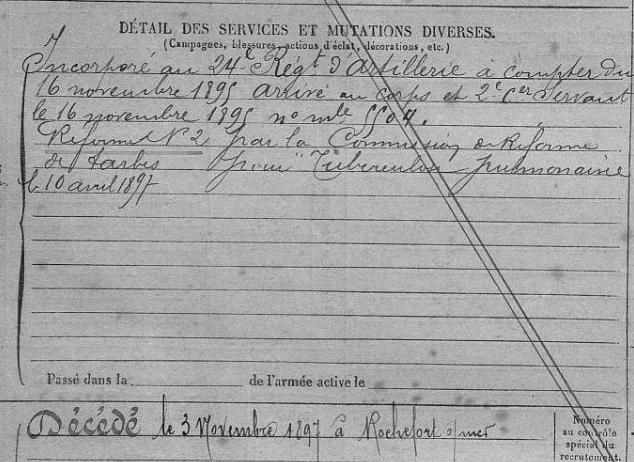 DÉTAIL DES SERVICES ET MUTATIONS DIVERSES.
(Campagnes, blessures, actions d'éclat, décorations, etc.)
Incorporé au 24e Régt d'Artillerie à compter du
16 novembre 1895 arrivé au corps et 2e Cer Servant
le 16 novembre 1895 no mle 5504.
Réformé N°2 par la Commission de Réforme
de Tarbes pour Tuberculose pulmonaire
le 10 avril 1897
Passé dans la de l'armée active le
Décédé le 3 Novembre 1897 à Rochefort s/mer
Numéro
au contrôle
spécial du
recrutement.